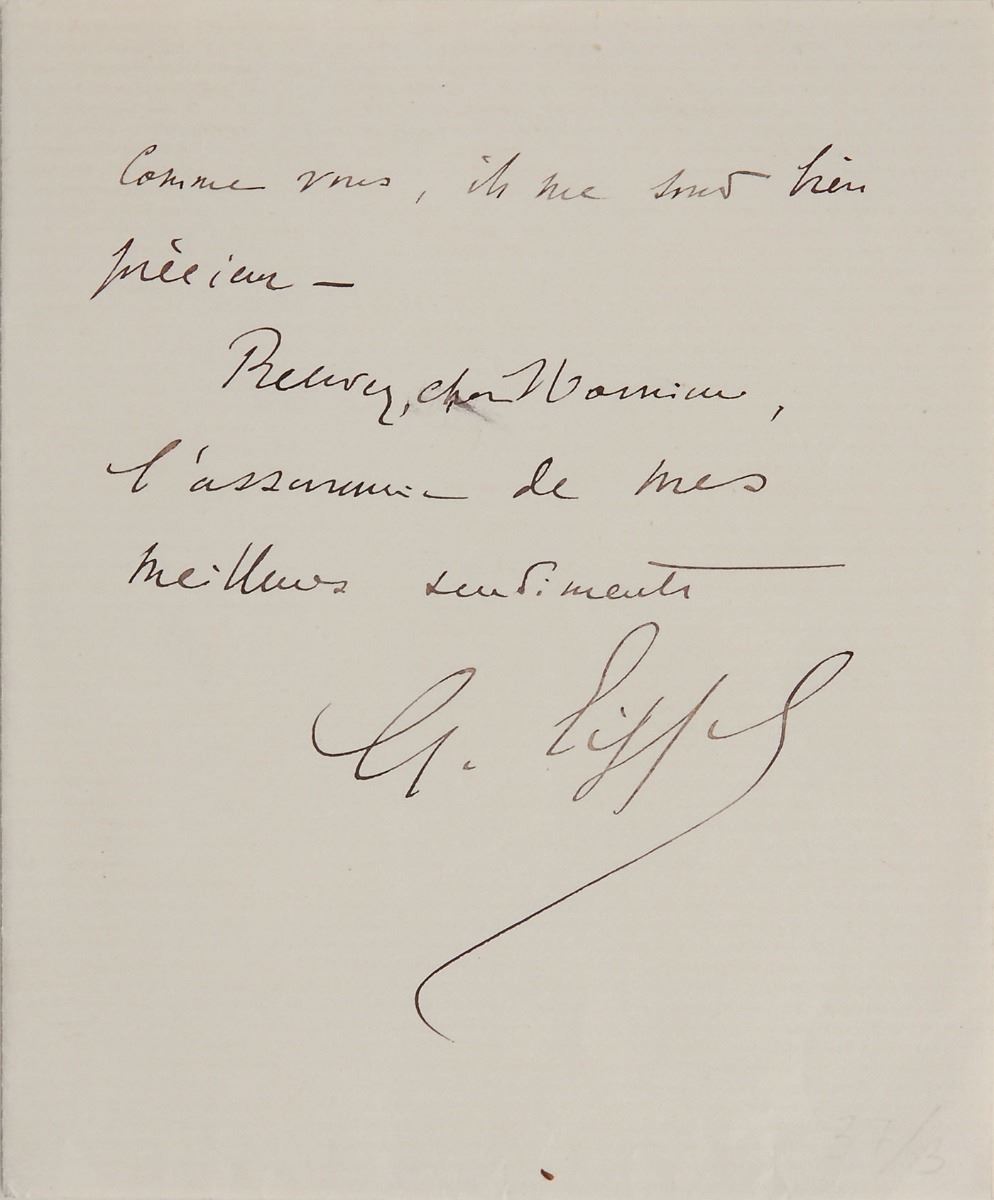 Comme vous, ils me sont bien
précieux –
Recevez, cher Monsieur,
l'assurance de mes
meilleurs sentiments
G. Eiffel
37/3